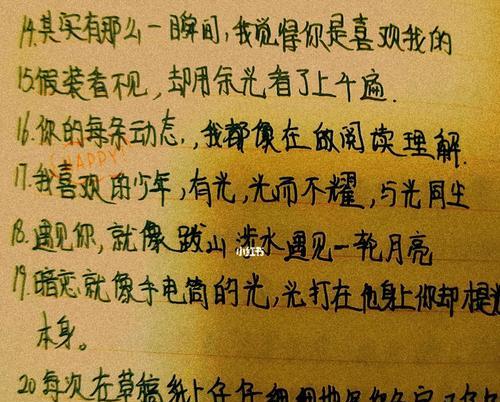 14.其实有那么一瞬间,我觉得你是喜欢我的
15.假装看不见,却用余光看了上千遍.
16.你的每条动态.,我都像在做阅读理解.
HAPPY!
17.我喜欢的少年,有光,光而不耀,与光同生
18.遇见你,就像跋山涉水遇见一轮月亮
小红书
19.暗恋就像手电筒的光,光打在他身上你却
本身。
20每次在草稿纸上仔仔细细地